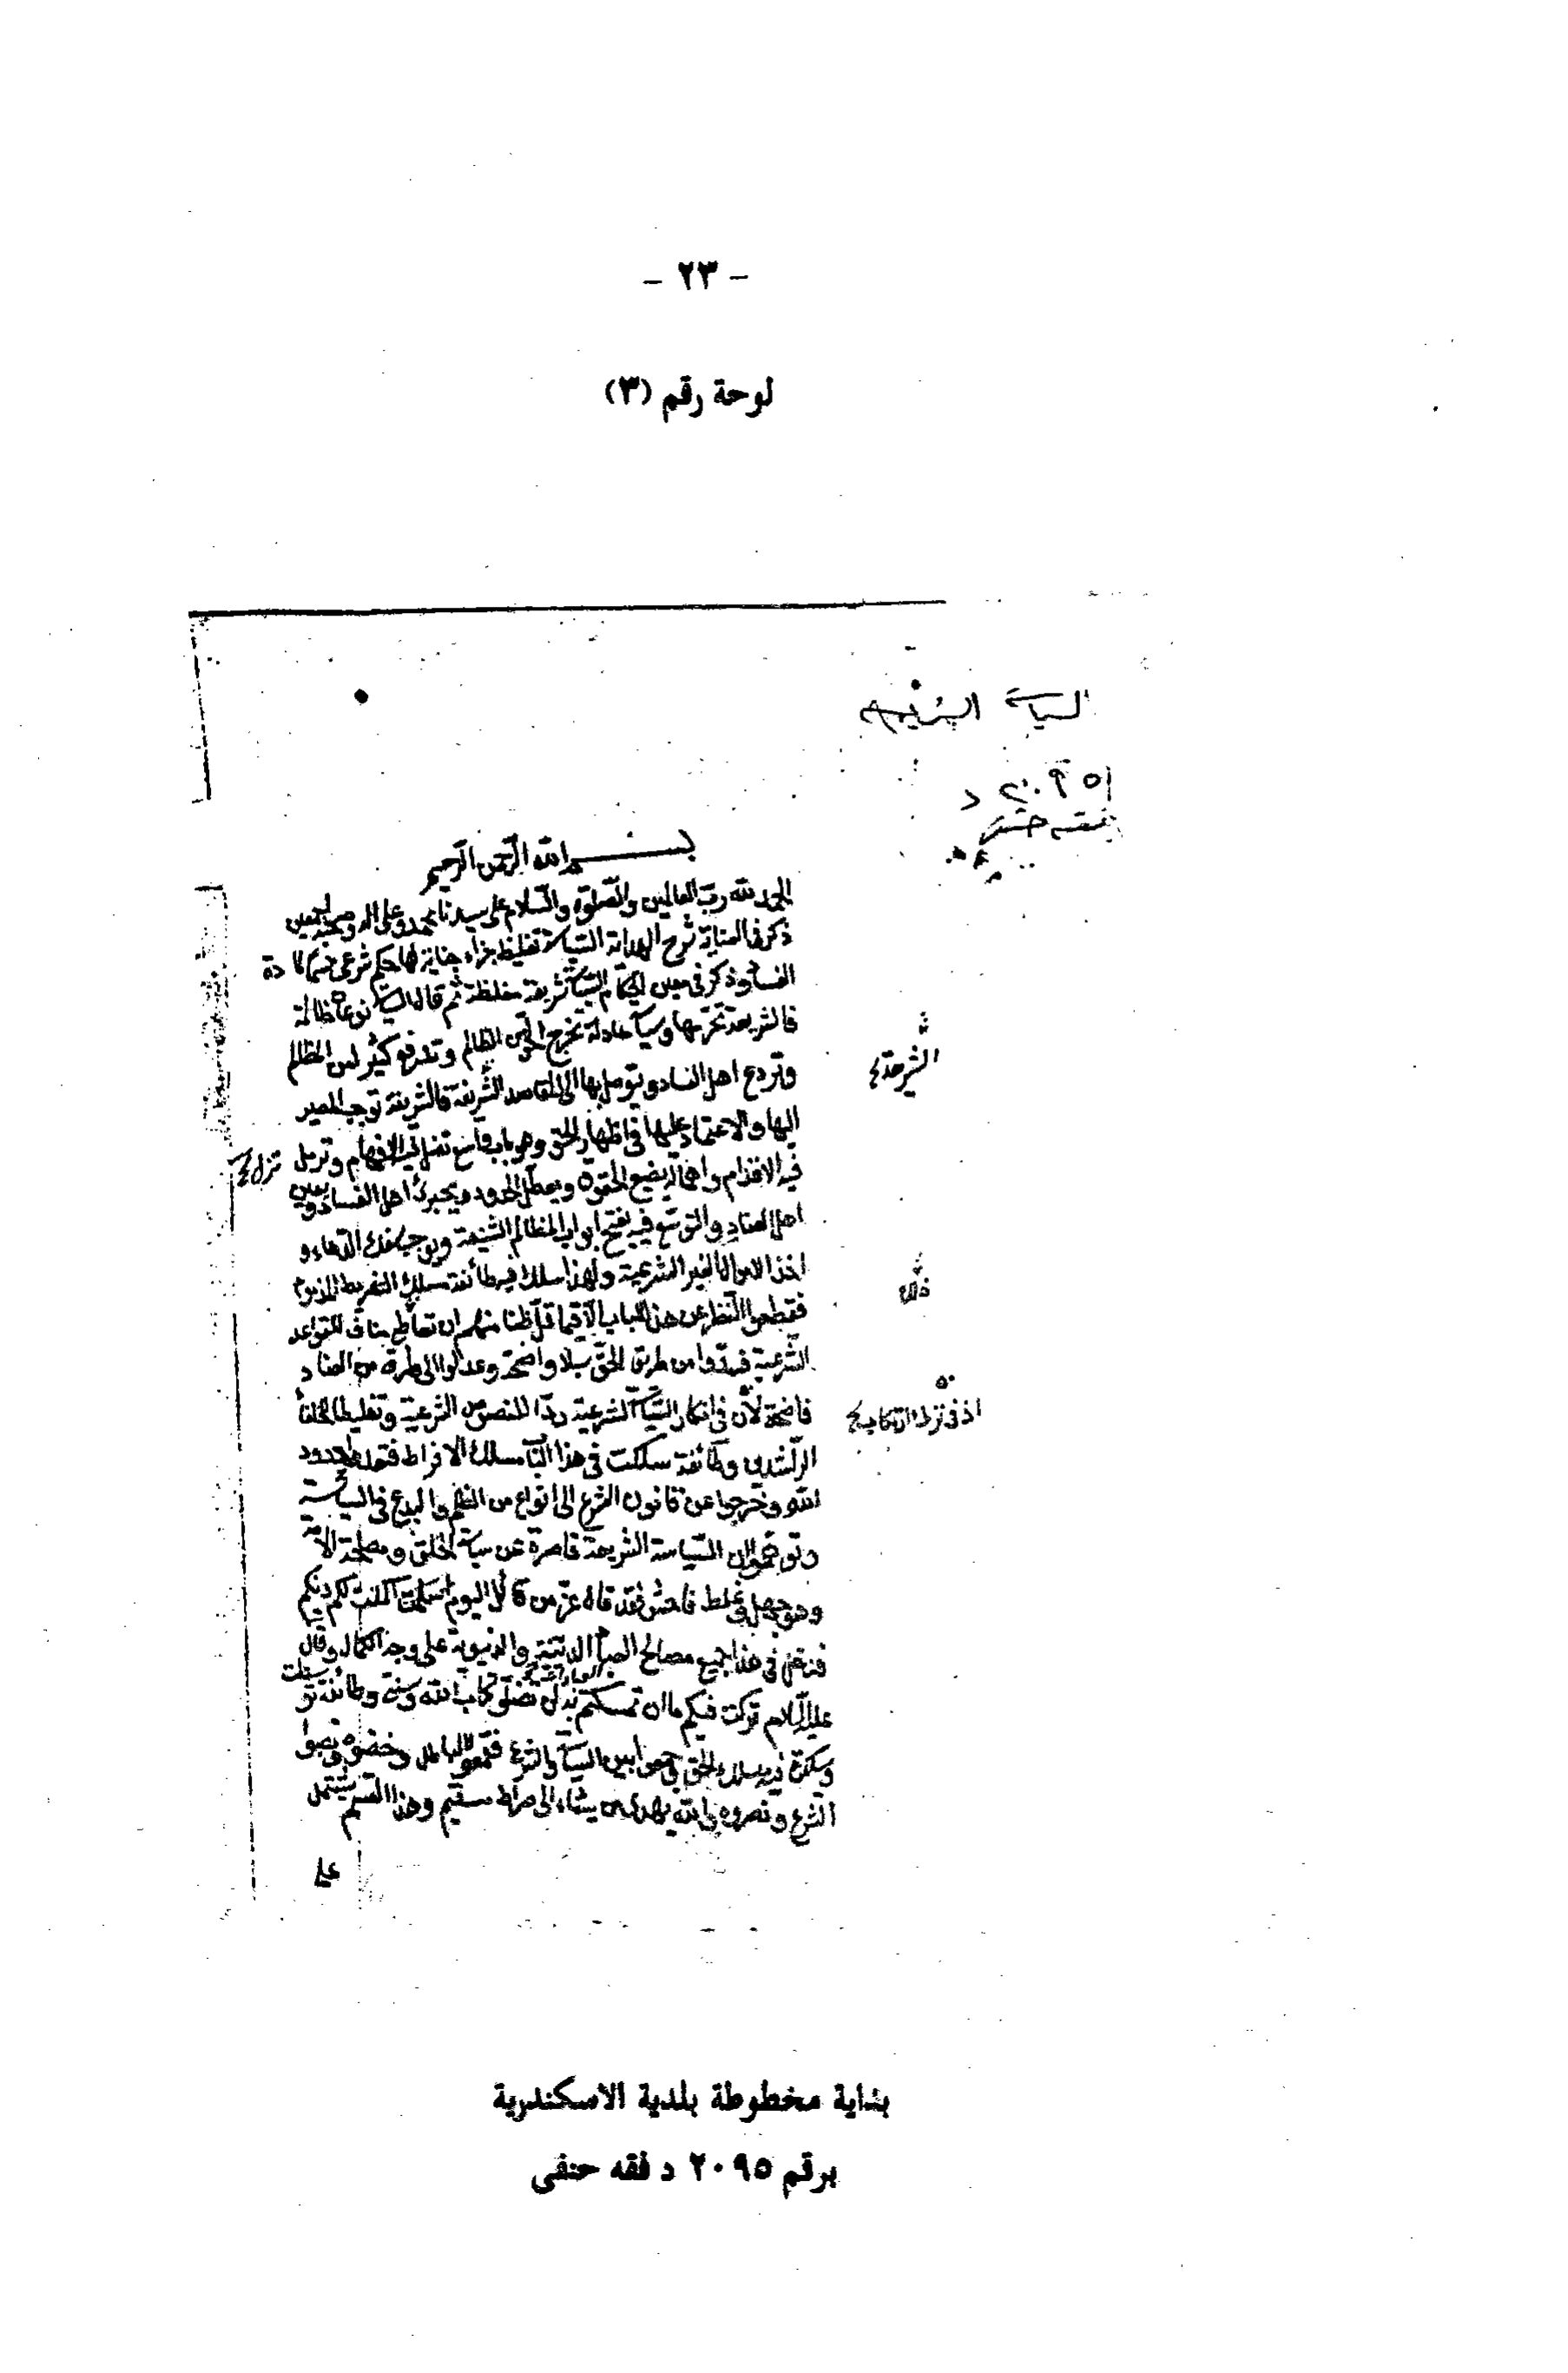 - ٢٣ -
لوحة رقم (٣)
السياسة الشرعية
٢٠٩٥ د
فقه حنفى
بسم الله الرحمن الرحيم
الحمد لله رب العالمين والصلوة والسلام على سيدنا محمد وعلى اله وصحبه اجمعين
ذكر فى العناية شرح الهداية السياسة تغليظ جزاء جناية لها حكم شرعى حسما لمادة
الفساد وذكر فى معين الحكام السياسة شريعة مغلظة ثم قال السياسة نوعان ظالمة
فالشريعة تحرمها وسياسة عادلة تخرج الحق من الظالم وتدفع كثيرا من المظالم
وتردع اهل الفساد ويتوصل بها الى المقاصد الشرعية فالشريعة توجب المصير
اليها والاعتماد عليها فى اظهار الحق وهو باب واسع تضل فيه الافهام وتزل
فيه الاقدام واهماله يضيع الحقوق ويعطل الحدود ويجرئ اهل الفساد ويعين
اهل العناد والتوسع فيه يفتح ابواب المظالم الشنيعة ويوجب سفك الدماء و
اخذ الاموال الغير الشرعية ولهذا سلك فيه طائفة مسلك التفريط المذموم
فقطعوا النظر عن هذا الباب الا فيما قل ظنا منهم ان تعاطى مناف للقواعد
الشرعية فسدوا من طريق الحق سبلا واضحة وعدلوا الى طريق من العناد
فاضحة لأن فى انكار السياسة الشرعية ردا للنصوص الشرعية وتغليطا للخلفاء
الراشدين وطائفة سلكت فى هذا الباب مسلك الافراط فتعدوا حدود
الله وخرجوا عن قانون الشرع الى انواع من الظلم والبدع فى السياسة
وتوهموا ان السياسة الشريعة قاصرة عن سياسة الخلق ومصلحة الامة
وهو جهل وغلط فاحش فقد قال عز من قائل اليوم اكملت لكم دينكم
فدخل فى هذا جميع مصالح العباد الدينية والدنيوية على وجه الكمال وقال
عليه السلام تركت فيكم ما ان تمسكتم به لن تضلوا كتاب الله وسنتى وطائفة توسطت
وسلكت فيه مسلك الحق وجمعوا بين السياسة والشرع فقمعوا الباطل ودحضوه ونصبوا
الشرع ونصروه والله يهدى من يشاء الى صراط مستقيم وهذا القسم يشتمل
على
بداية مخطوطة بلدية الاسكندرية
برقم ٢٠٩٥ د فقه حنفى